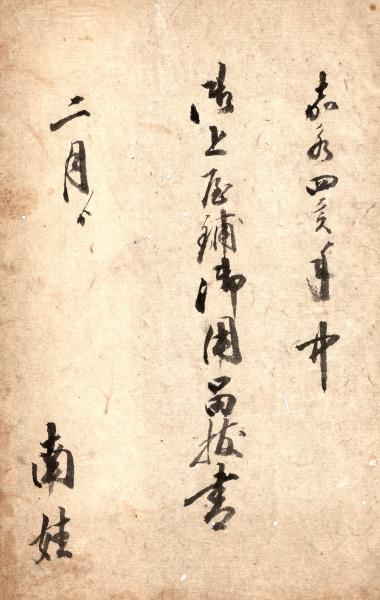 嘉永四亥年中
御上屋鋪御用留抜書
二月ゟ
南娃